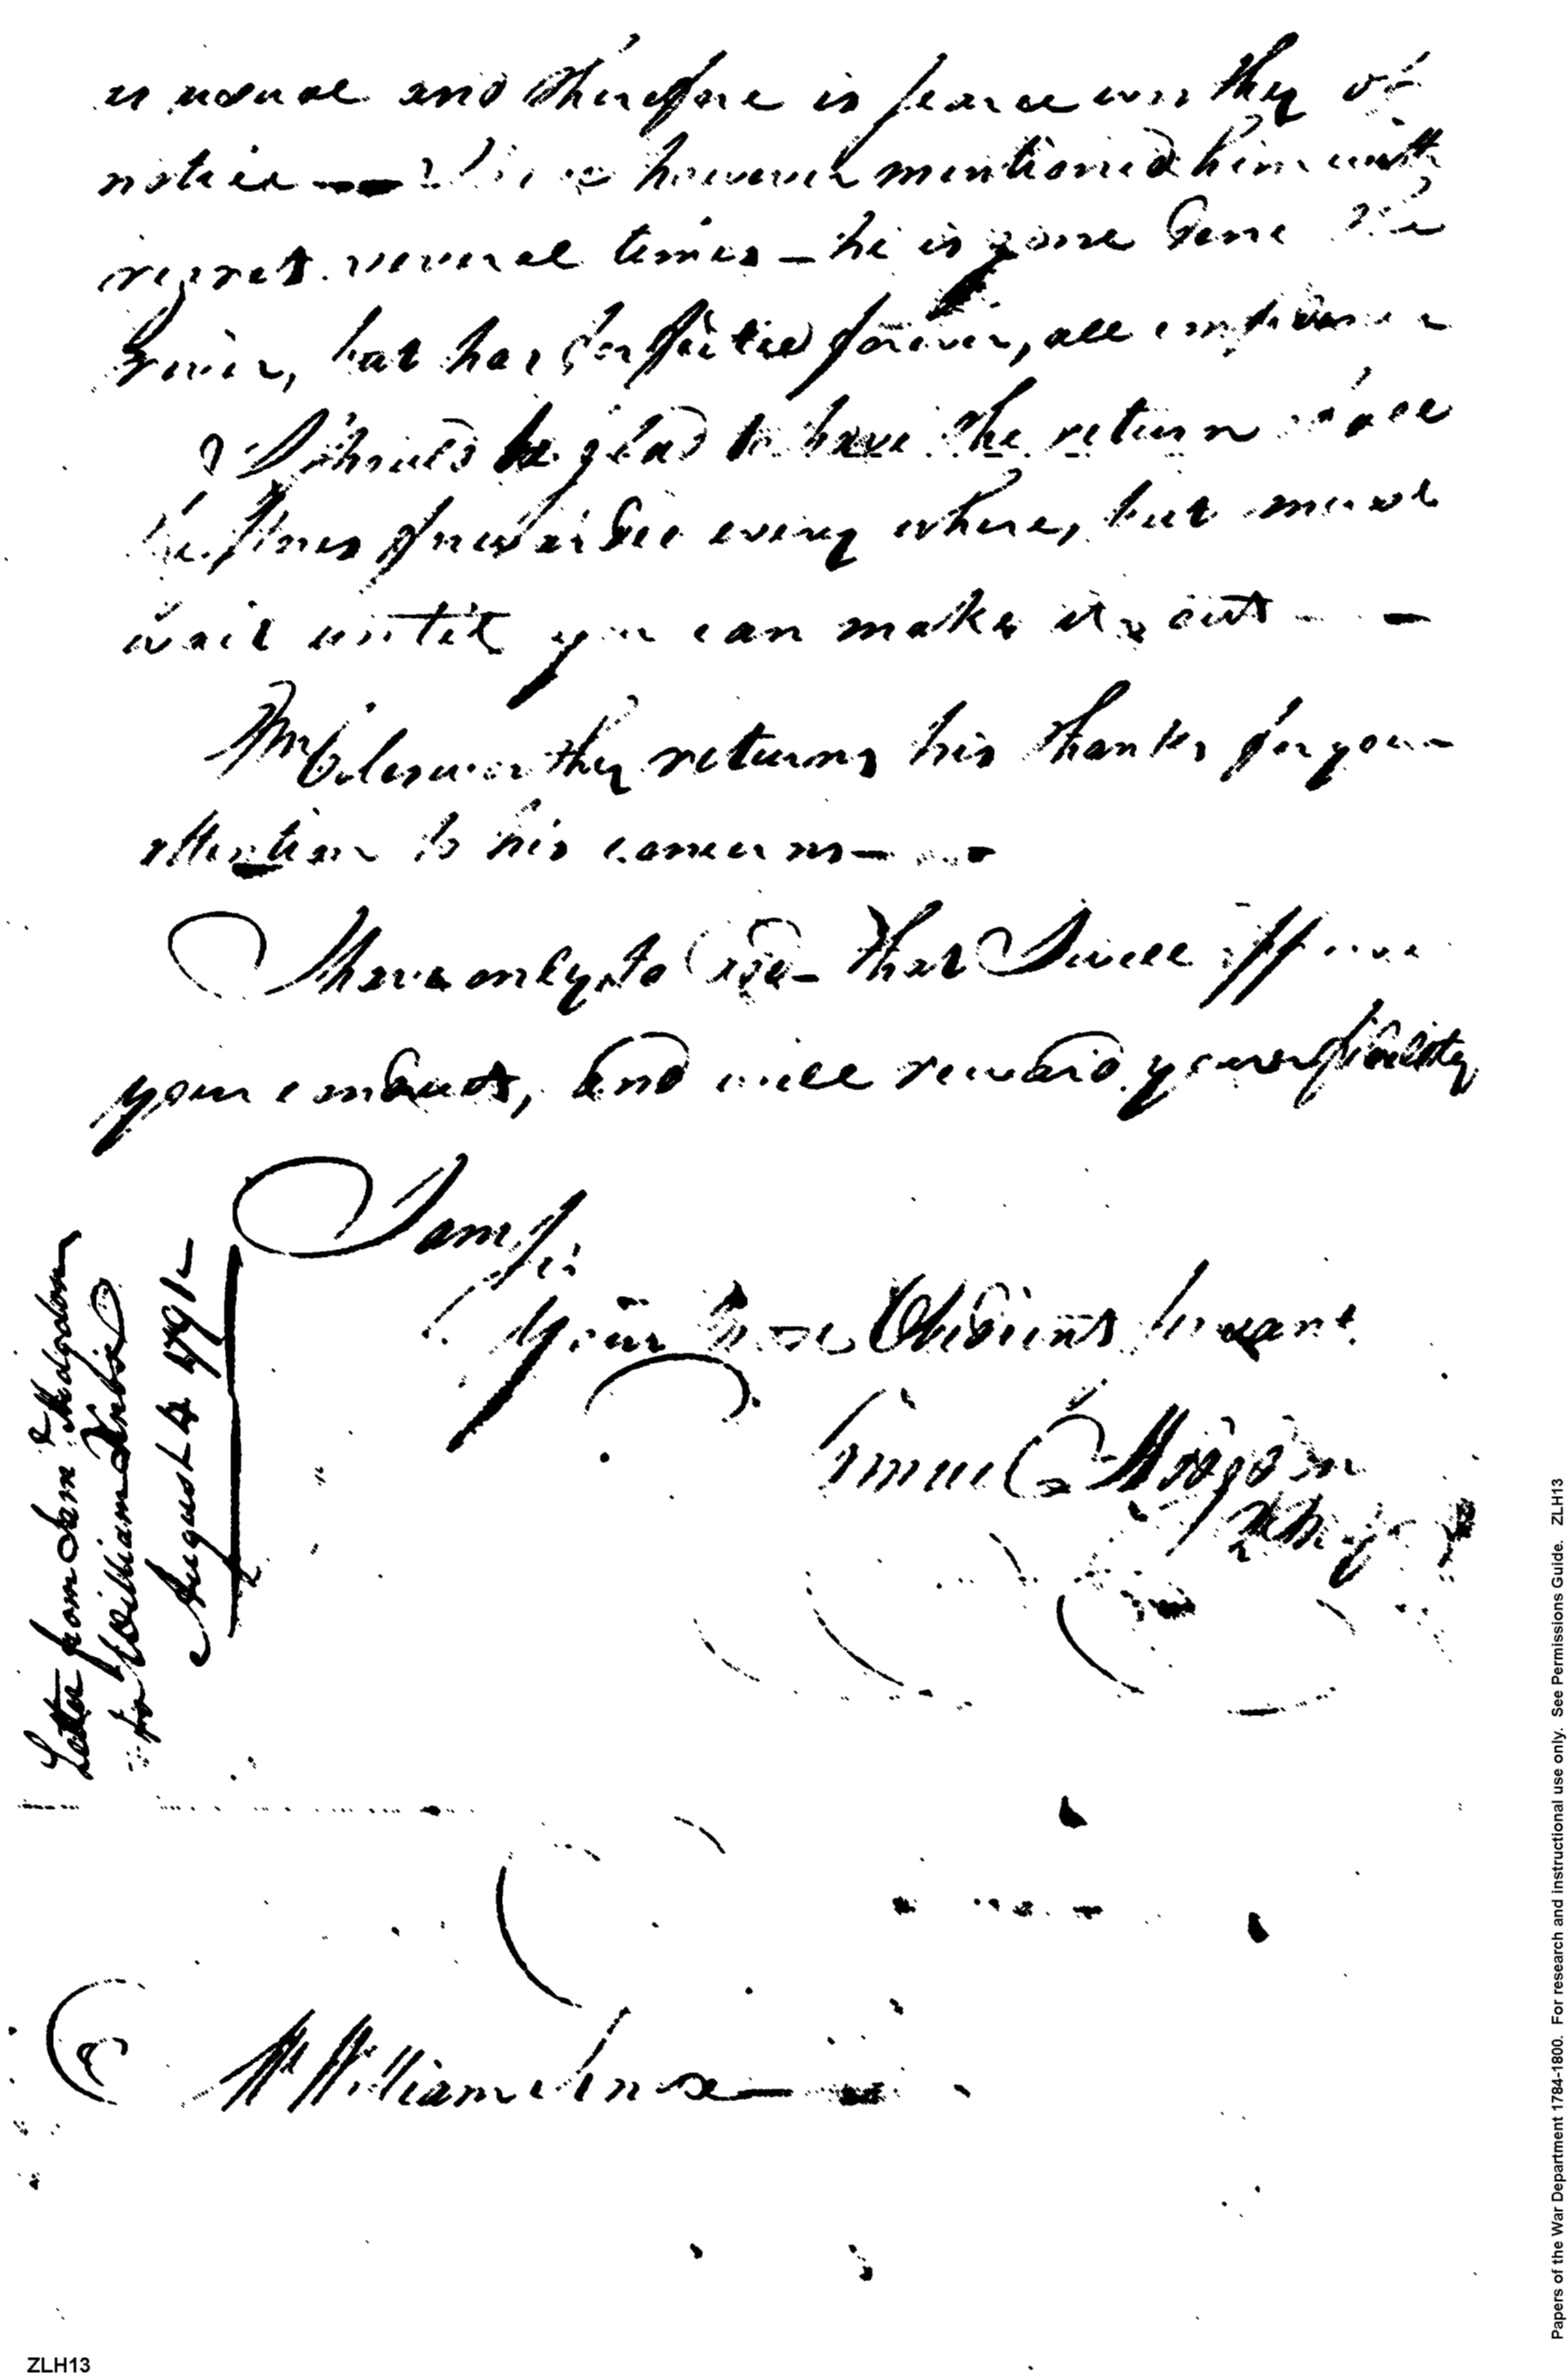 is usual and therefore is scarce worthy of
notice — however mentioned him with
regret several times — he is gone down the
River, but has forfeited forever, all confidence
I should be glad to have the return
every where, but must
wait until you can make it out —
Mr Colesworthy returns his thanks for your
attention to his concerns —
I have only to add that I will
your conduct, and will reward your fidelity
I am Sir
Your Most Obedient Servant
Samuel Hodgdon
QMG
Letter from Saml Hodgdon
to William Knox
August 4 1791
Mr William Knox —
ZLH13
Papers of the War Department 1784-1800. For research and instructional use only. See Permissions Guide. ZLH13